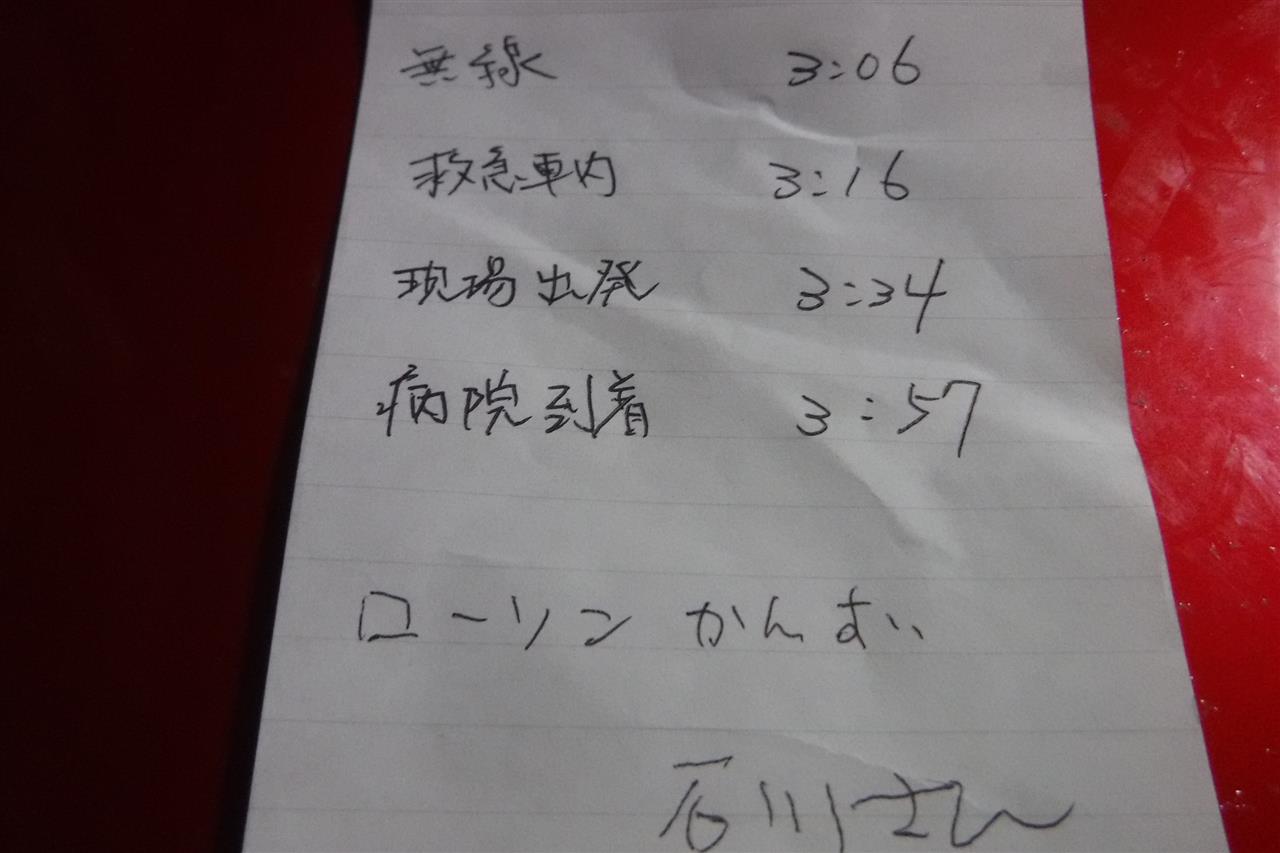 無線 3:06
救急車内 3:16
現場出発 3:34
病院到着 3:57
ローソン かんすい
石川さん